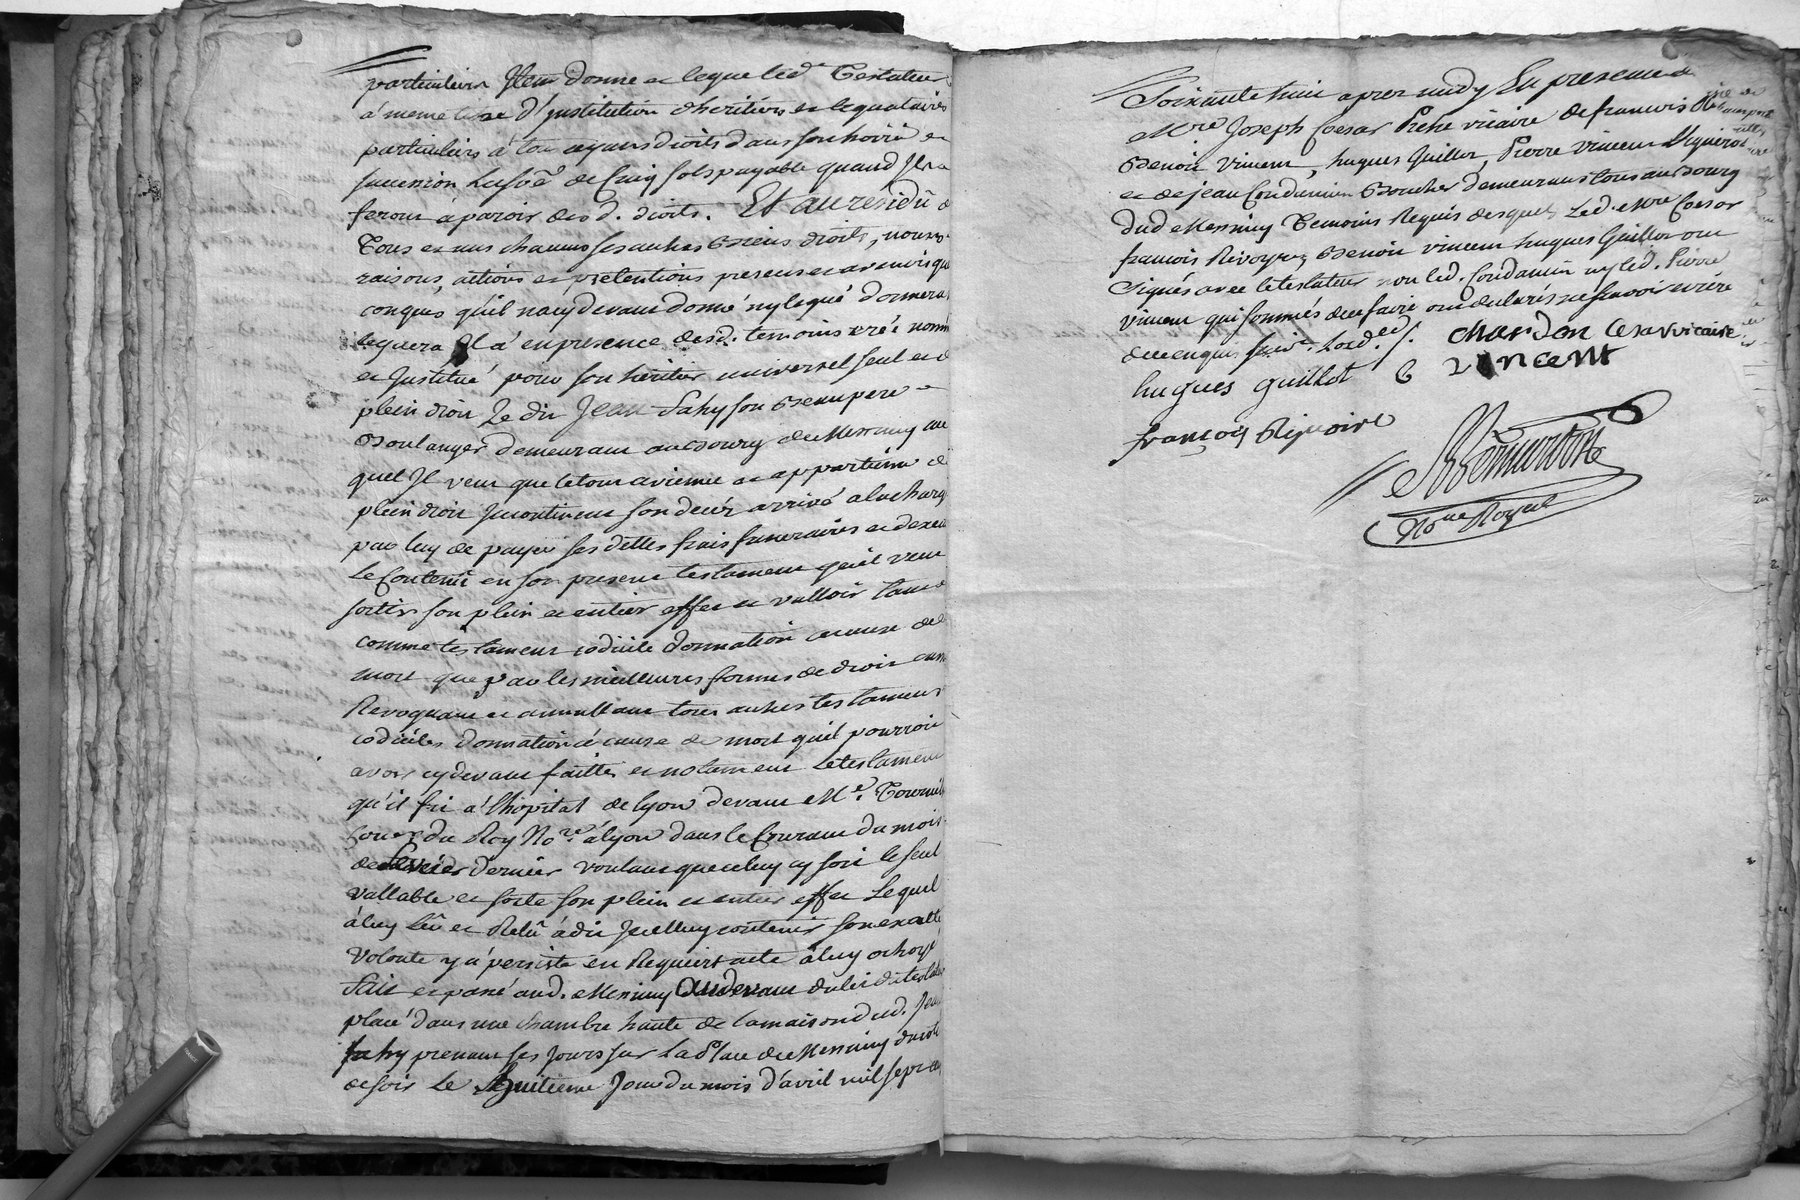 particuliers Item donne et legue led. Testateur
à meme titre d'Institution d'heritiers et legataires
particuliers à tou ayans droits dans son hoirie et
succession la so.e de Cinq sols payable quand Ils
feront à paroir desd. droits. Et au residu de
Tous et uns chacuns ses autres Biens droits, noms
raisons, actions et pretentions presens et avenirs quel
conques qu'il n'a cy devant donné ny legué donnera
leguera Il a en presence desd. temoins créé nommé
et Institué pour son heritier universel seul et de
plein droit le dit Jean Fahy son Beaupere
Boulanger demeurant au Bourg de Messimy au
quel Il veut que le tout avienne et appartienne de
plein droit Incontinent son decés arrivé a la charge
par luy de payer ses dettes frais funeraires et
le Contenû en son present testament qu'il veut
sortir son plein et entier effet et valloir tant
comme testament codicile donnation a cause de
mort que par les meilleures formes de droit
Revoquant et annullant tous autres testamens
codiciles donnation à cause de mort qu'il pourroit
avoir cy devant faittes et notament le testament
qu'il fit à l'hopital de lyon devant Me.
Con.er du Roy No.re à lyon dans le Courant du mois
de fevrier dernier voulant que celuy cy soit le seul
vallable et sorte son plein et entier effet Lequel
à luy Lû et Relû à dit Icelluy contenir son exacte
Volonte y a persisté en Requiert acte à luy octroyé
Fait et passé aud. Messimy au devant du lit du testateur
placé dans une chambre haute de la maison dud. Jean
fahy prenant ses jours sur La Place de Messimy
de soir Le huitieme Jour du mois d'avril mil sept cent
Soixante huit apres midy En presence de
Mre Joseph Coesar Pretre vicaire de francois
Benoit Vincent, hugues Guillot, Pierre Vincent Vigneron
et de jean Condamin Boucher demeurans tous au Bourg
dud Messimy Temoins Requis desquels Led. Mre Coesar
francois Benoit vincent hugues Guillot ont
signés avec le testateur non led. Condamin ny led. Pierre
vincent qui sommés de ce faire ont declarés ne sçavoir ecrire
de ce enquis
chardon Cesar vicaire
hugues guillot B vincent
françois
No.re Royal